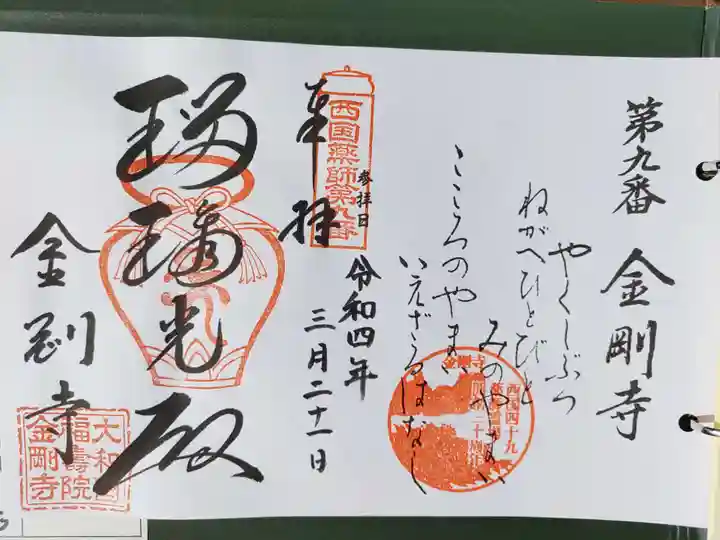 第九番 金剛寺
やくしぶつ
ねがへひとびと
みのやまい
こころのやまい
いえざるはなし
参拝日
令和四年
三月二十一日
西国薬師第九番
奉拝
瑠璃光殿
金剛寺
大和国
福壽院
金剛寺
金剛寺
西国四十九